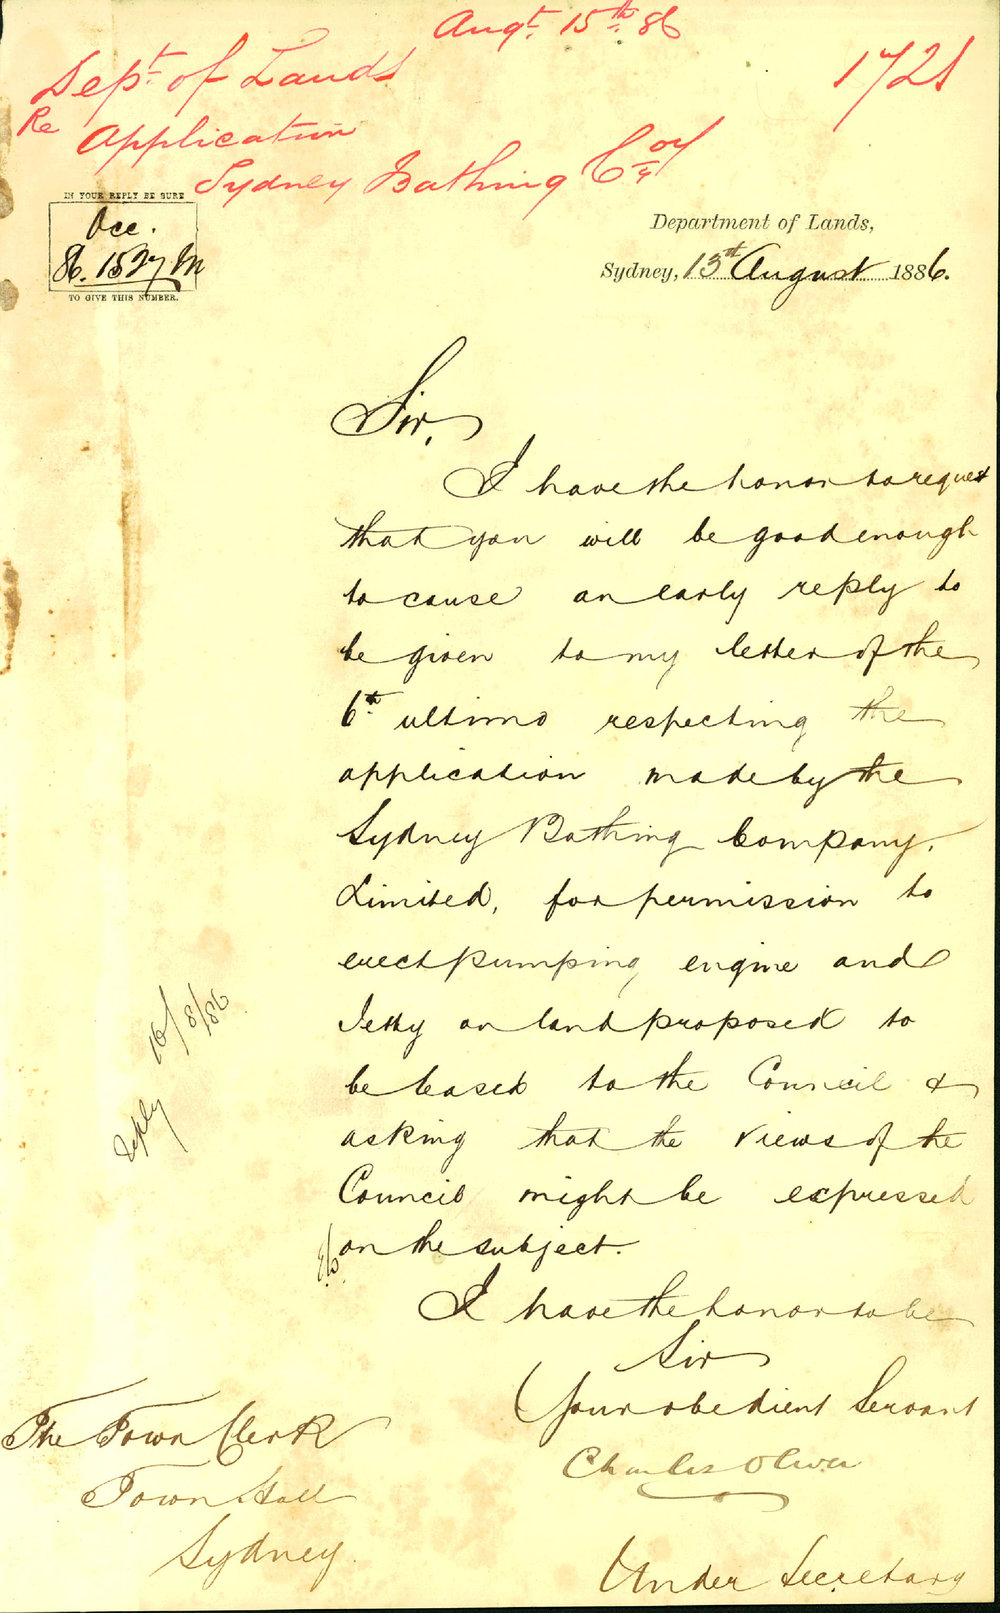 Augt. 15th. 86
Dept. of Lands
1721
Re Application
Sydney Bathing Coy
IN YOUR REPLY BE SURE
Occ.
86.1527 M
TO GIVE THIS NUMBER.
Department of Lands,
Sydney, 13th August 1886.
Sir,
I have the honor to request
that you will be good enough
to cause an early reply to
be given to my letter of the
6th ultimo respecting the
application made by the
Sydney Bathing Company,
Limited, for permission to
erect pumping engine and
Jetty on land proposed to
be leased to the Council &
asking that the views of the
Council might be expressed
on the subject.
Reply 16/8/86
I have the honor to be
Sir
Your obedient Servant
Charles Oliver
Under Secretary
The Town Clerk
Town Hall
Sydney